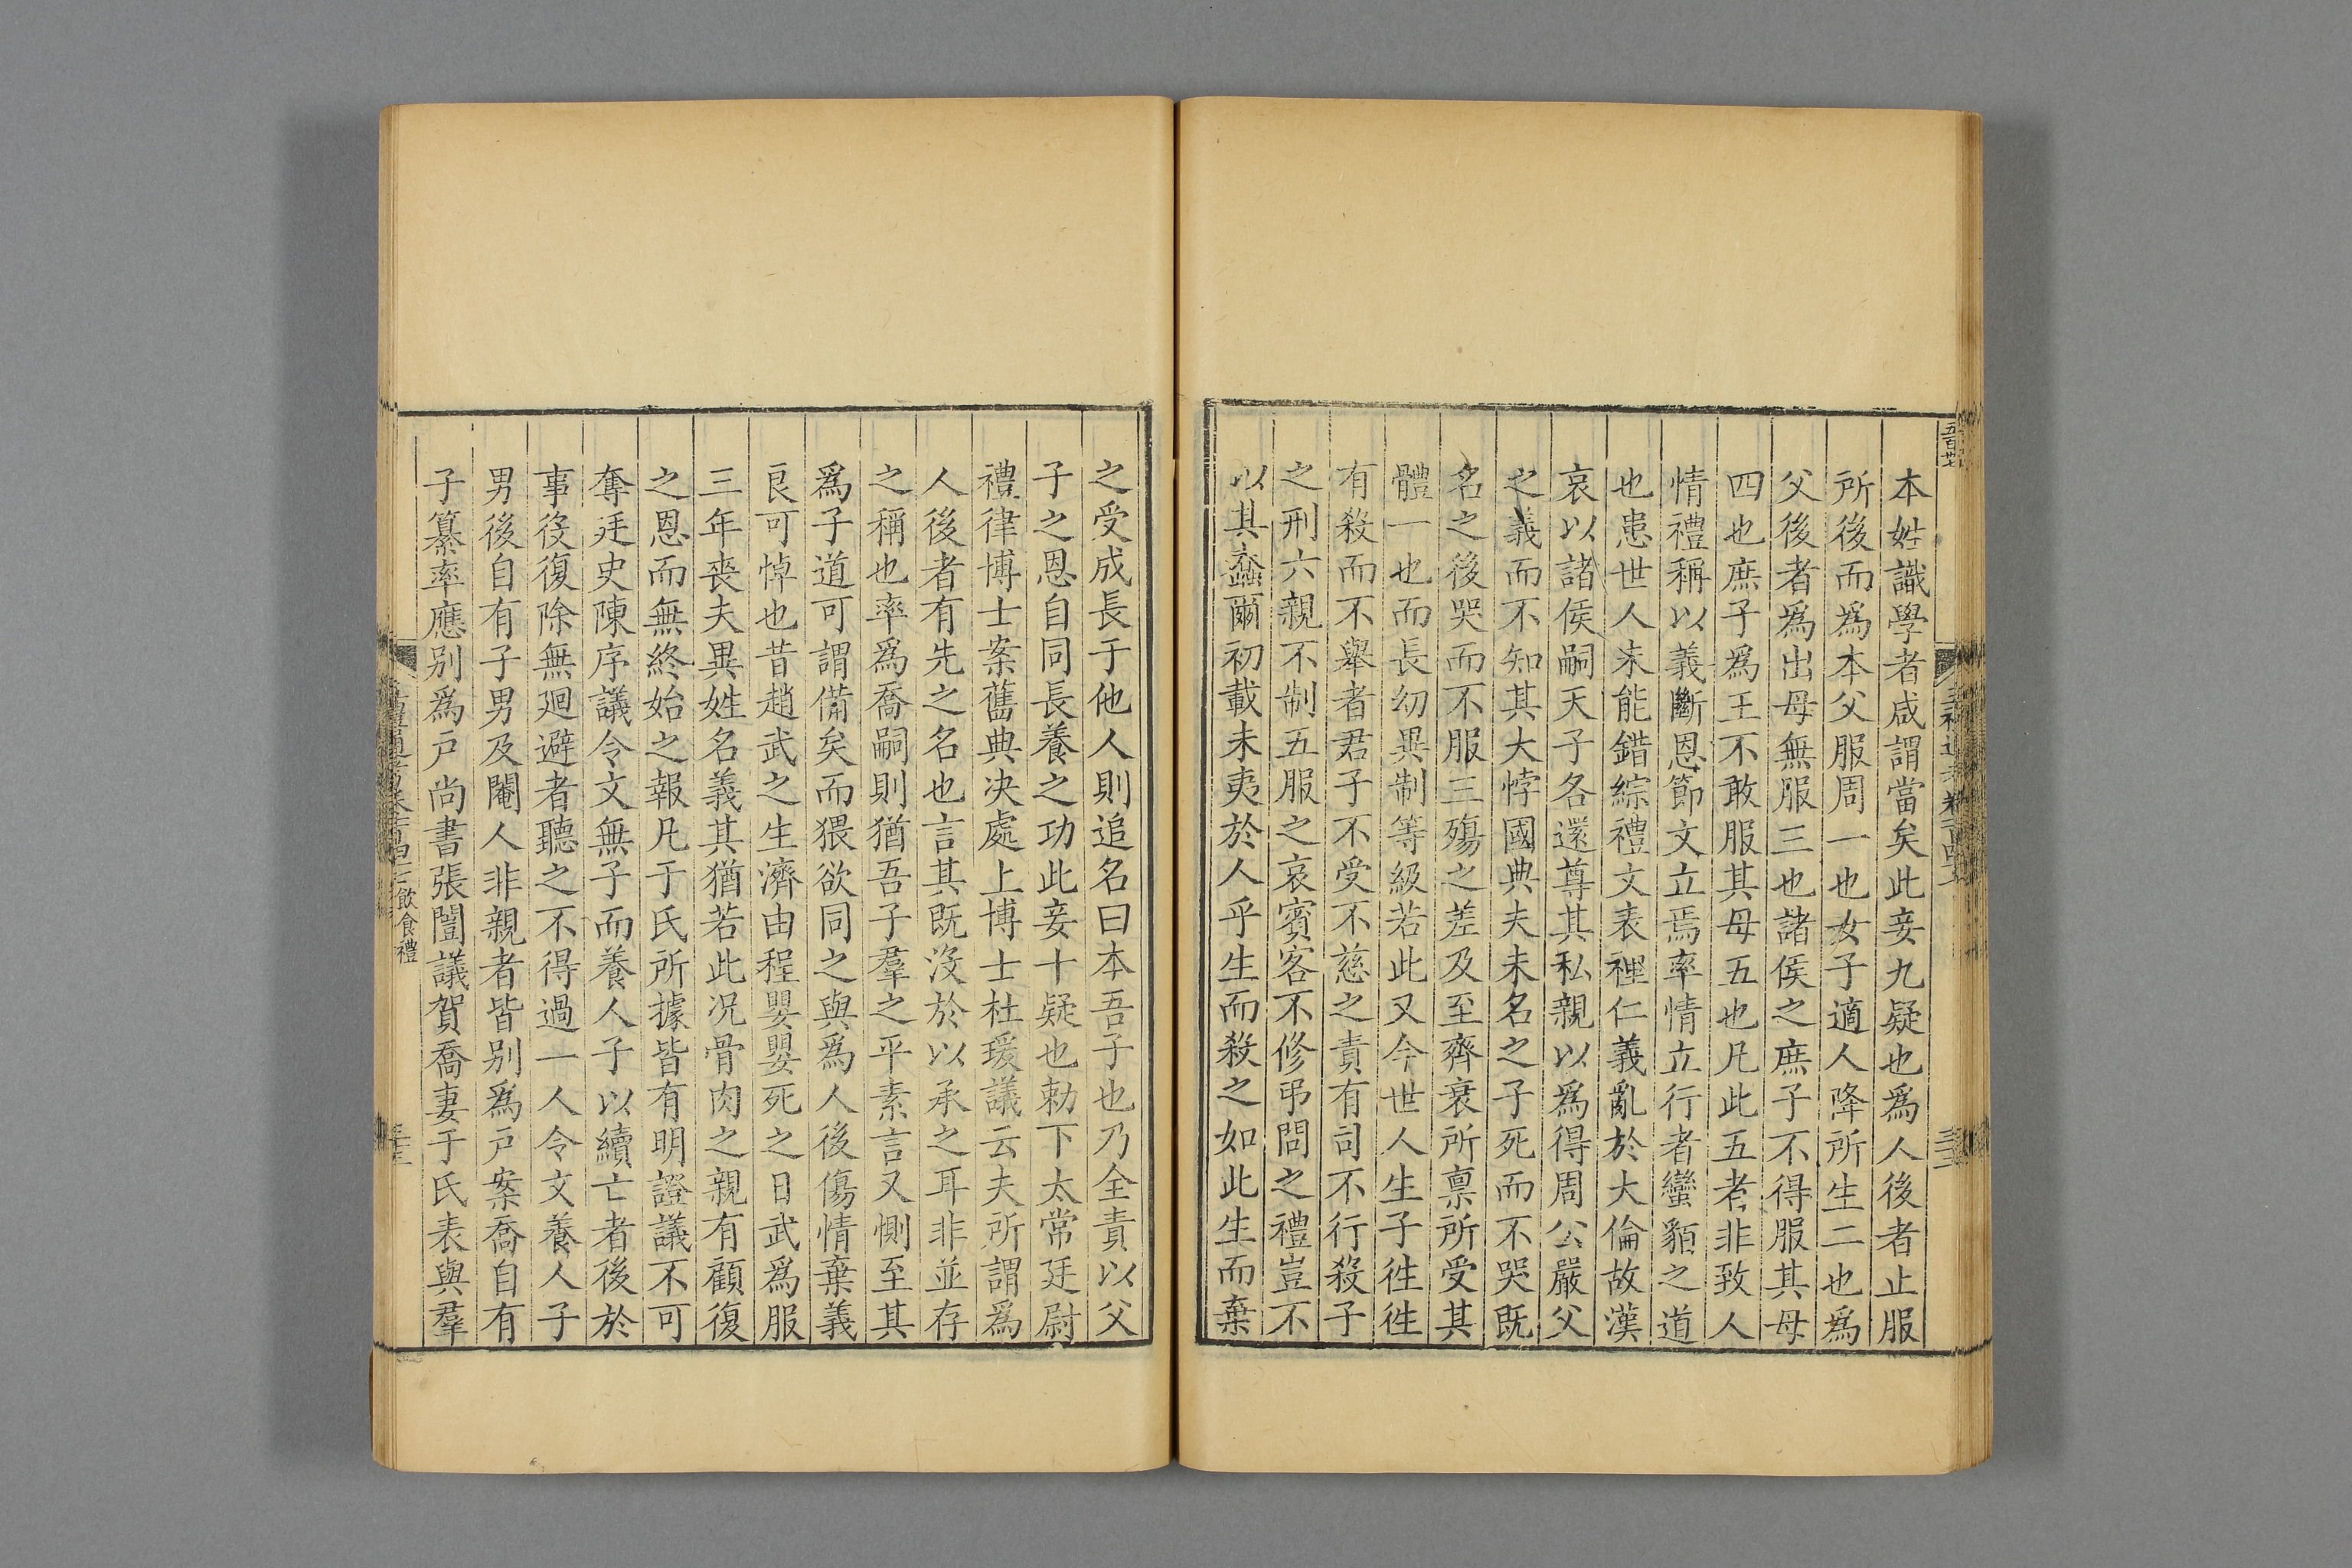 本姓識學者咸謂當矣此妾九疑也爲人後者止服
所後而爲本父服周一也女子適人降所生二也爲
父後者爲出母無服三也諸侯之庶子不得服其母
四也庶子爲王不敢服其母五也凡此五者非致人
情禮稱以義斷恩節文立焉率情立行者蠻貊之道
也患世人未能錯綜禮文表裡仁義亂於大倫故漢
哀以諸侯嗣天子各還尊其私親以爲得周公嚴父
之義而不知其大悖國典夫未名之子死而不哭既
名之後哭而不服三殤之差及至齊衰所禀所受其
體一也而長幼異制等級若此又今世人生子徃徃
有殺而不舉者君子不受不慈之責有司不行殺子
之刑六親不制五服之哀賓客不修弔問之禮豈不
以其蠢爾初載未夷於人乎生而殺之如此生而棄
之受成長于他人則追名曰本吾子也乃全責以父
子之恩自同長養之功此妾十疑也勅下太常廷尉
禮律博士案舊典决處上博士杜瑗議云夫所謂爲
人後者有先之名也言其既沒於以承之耳非並存
之稱也率爲喬嗣則猶吾子羣之平素言又惻至其
爲子道可謂備矣而猥欲同之與爲人後傷情棄義
良可悼也昔趙武之生濟由程嬰嬰死之日武爲服
三年喪夫異姓名義其猶若此况骨肉之親有顧復
之恩而無終始之報凡于氏所據皆有明證議不可
奪廷史陳序議令文無子而養人子以續亡者後於
事役復除無迴避者聽之不得過一人令文養人子
男後自有子男及閹人非親者皆別爲戶案喬自有
子纂率應別爲戶尚書張闓議賀喬妻于氏表與羣
飲食禮